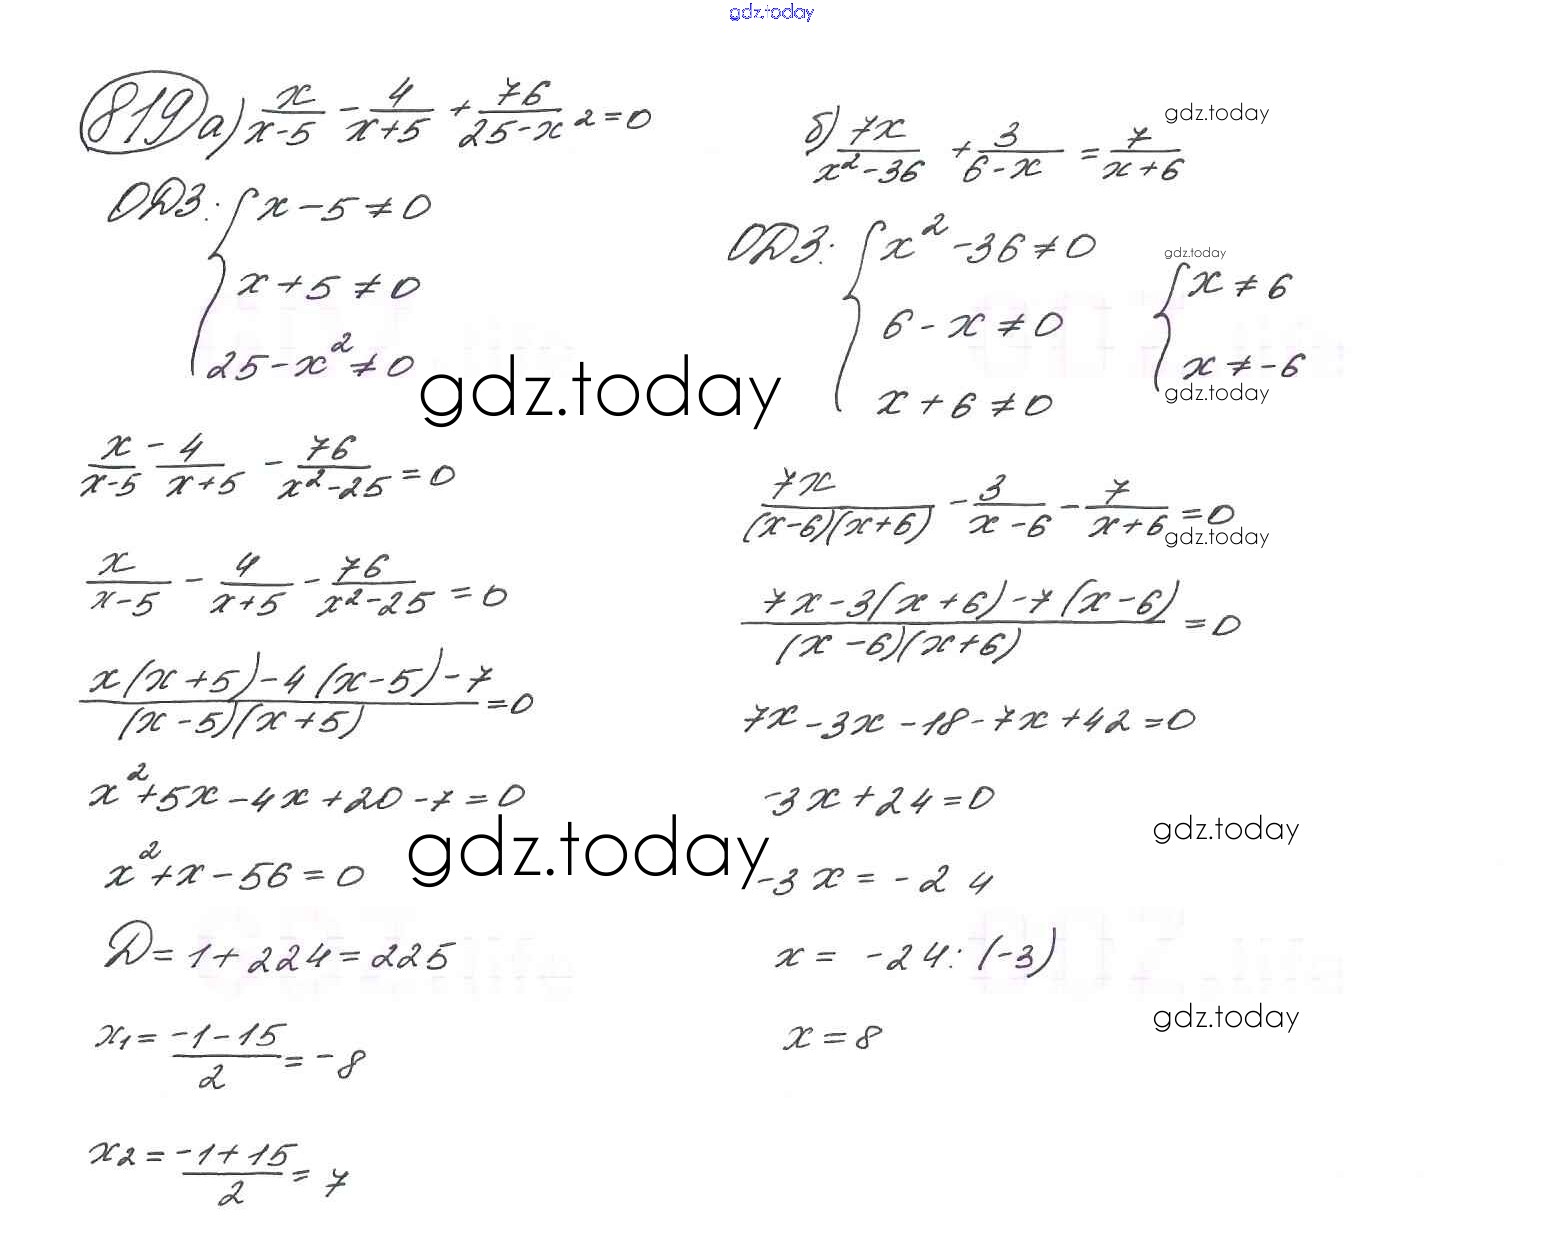 gdz.today
819 а) x/(x-5) - 4/(x+5) + 76/(25-x²) = 0
ОДЗ: { x-5≠0
x+5≠0
25-x²≠0
gdz.today
x/(x-5) - 4/(x+5) - 76/(x²-25) = 0
x/(x-5) - 4/(x+5) - 76/(x²-25) = 0
(x(x+5)-4(x-5)-7)/((x-5)(x+5)) = 0
x²+5x-4x+20-7=0
gdz.today
x²+x-56=0
D=1+224=225
x₁ = (-1-15)/2 = -8
x₂ = (-1+15)/2 = 7
gdz.today
б) 7x/(x²-36) + 3/(6-x) = 7/(x+6)
ОДЗ: { x²-36≠0
6-x≠0
x+6≠0
gdz.today
{ x≠6
x≠-6
gdz.today
7x/((x-6)(x+6)) - 3/(x-6) - 7/(x+6) = 0
gdz.today
(7x-3(x+6)-7(x-6))/((x-6)(x+6)) = 0
7x-3x-18-7x+42=0
-3x+24=0
gdz.today
-3x=-24
x=-24:(-3)
gdz.today
x=8